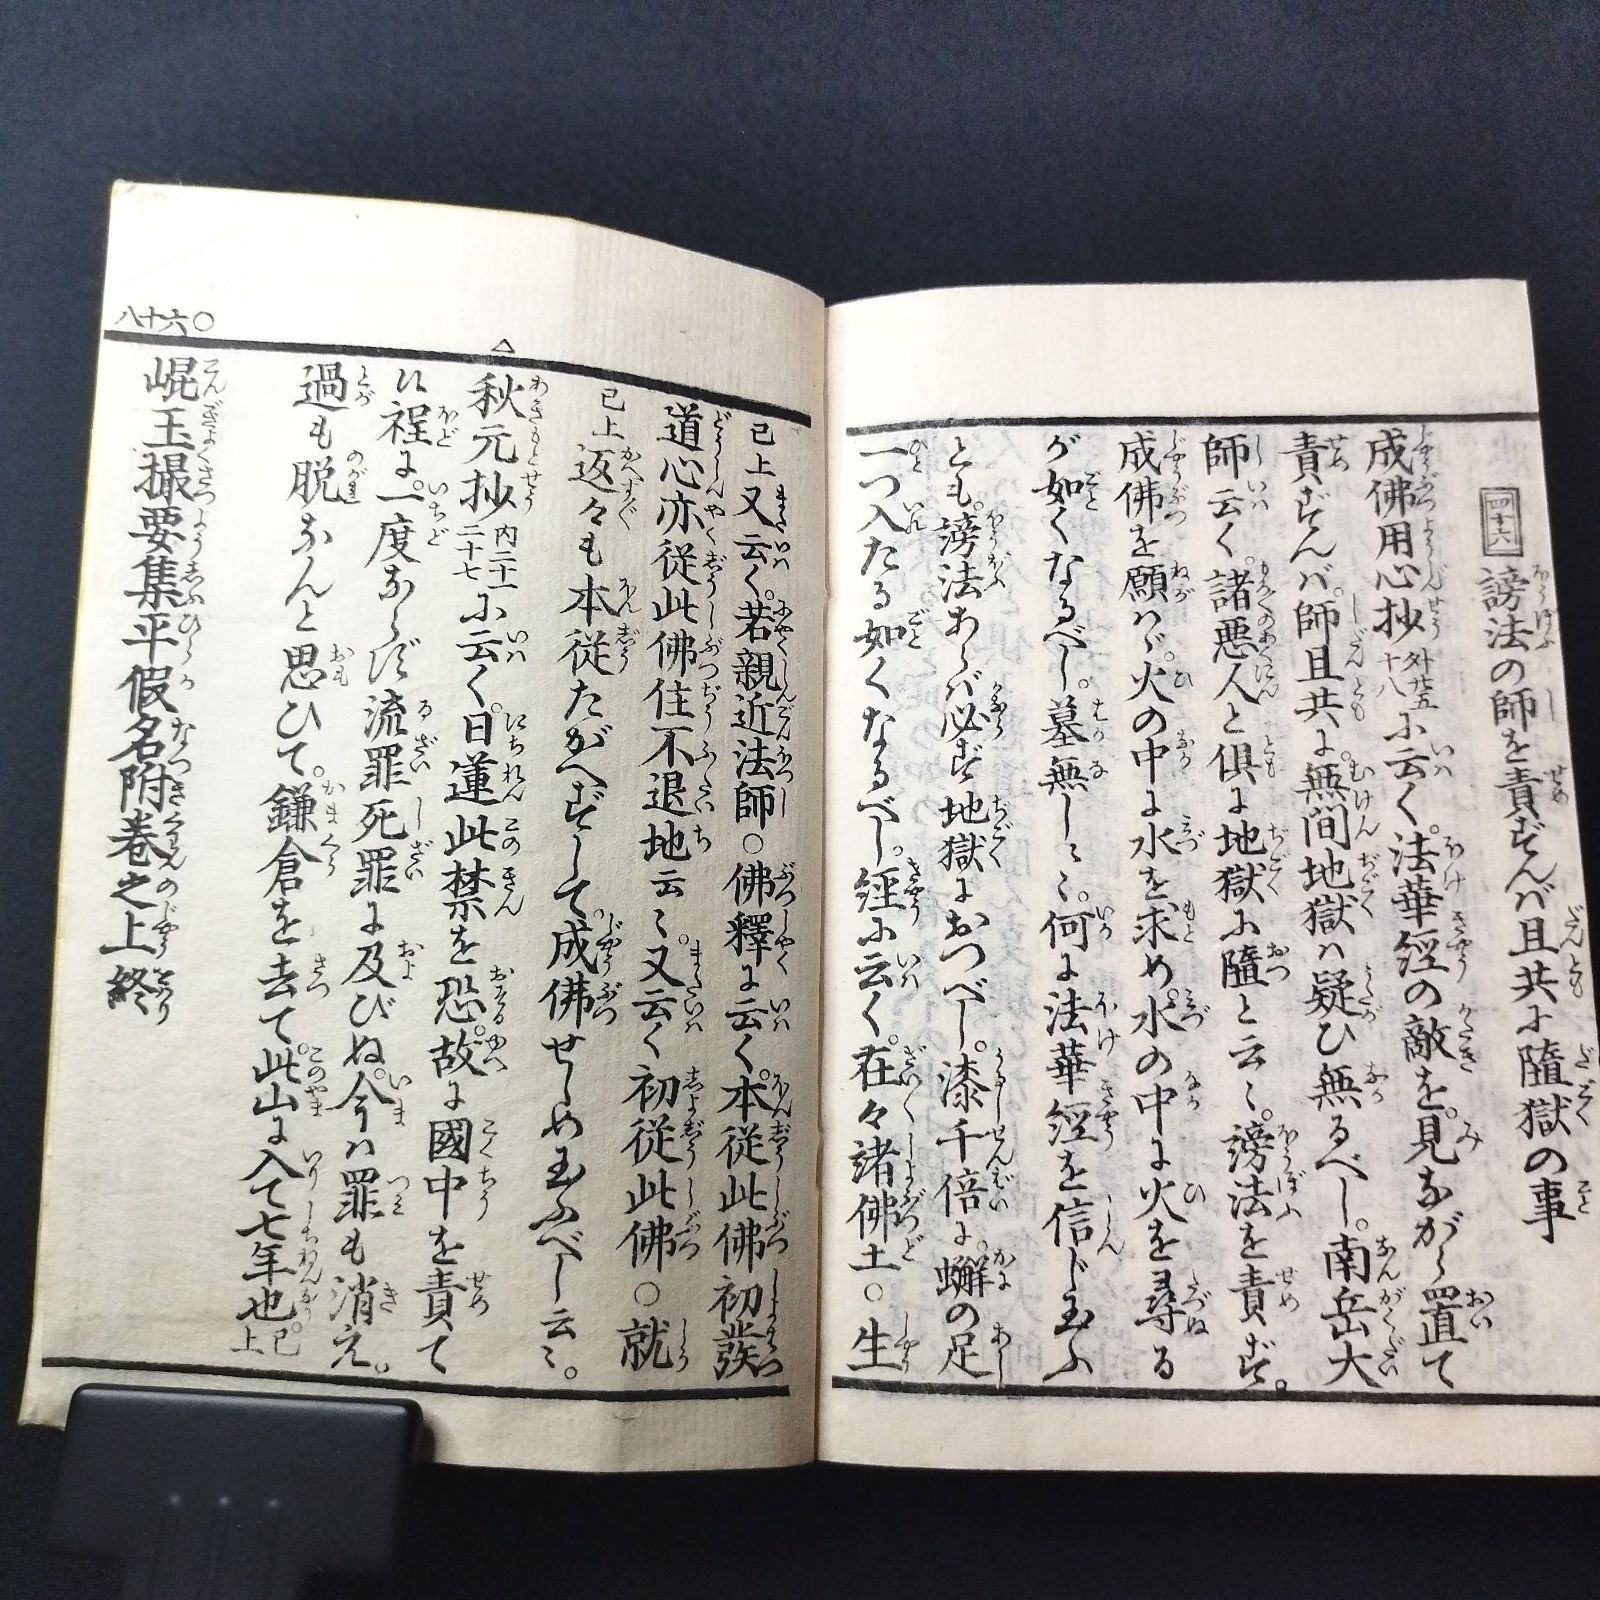 四十六 謗法の師を責ずんば且共に墮獄の事
成佛用心抄外廿五十八に云く。法華經の敵を。見ながら置て
責ずんば。師且共に。無間地獄は疑ひ無るべし。南岳大
師云く。諸惡人と俱に地獄に墮と云云。謗法を責ず。
成佛を願はゞ。火の中に水を求め。水の中に火を尋る
が如くなるべし。墓無し墓無し。何に法華經を信じ玉ふ
とも。謗法あらば必ず地獄におつべし。漆千倍に。蠏の足
一つ入たる如くなるべし。經に云く。在々諸佛土○生
已上又云く。若親近法師○佛釋に云く。本從此佛初發
道心亦從此佛住不退地云云。又云く初從此佛○就
已上返々も本從たがへずして。成佛せしめ玉ふべし云云。
秋元抄内二十一二十七に云く。日蓮此禁を恐。故に國中を責て
候程に。一度ならず流罪死罪に及びぬ。今は罪も消え。
過も脱なんと思ひて。鎌倉を去て。此山に入て七年也已上
崐玉撮要集平假名附卷之上終
八十六○